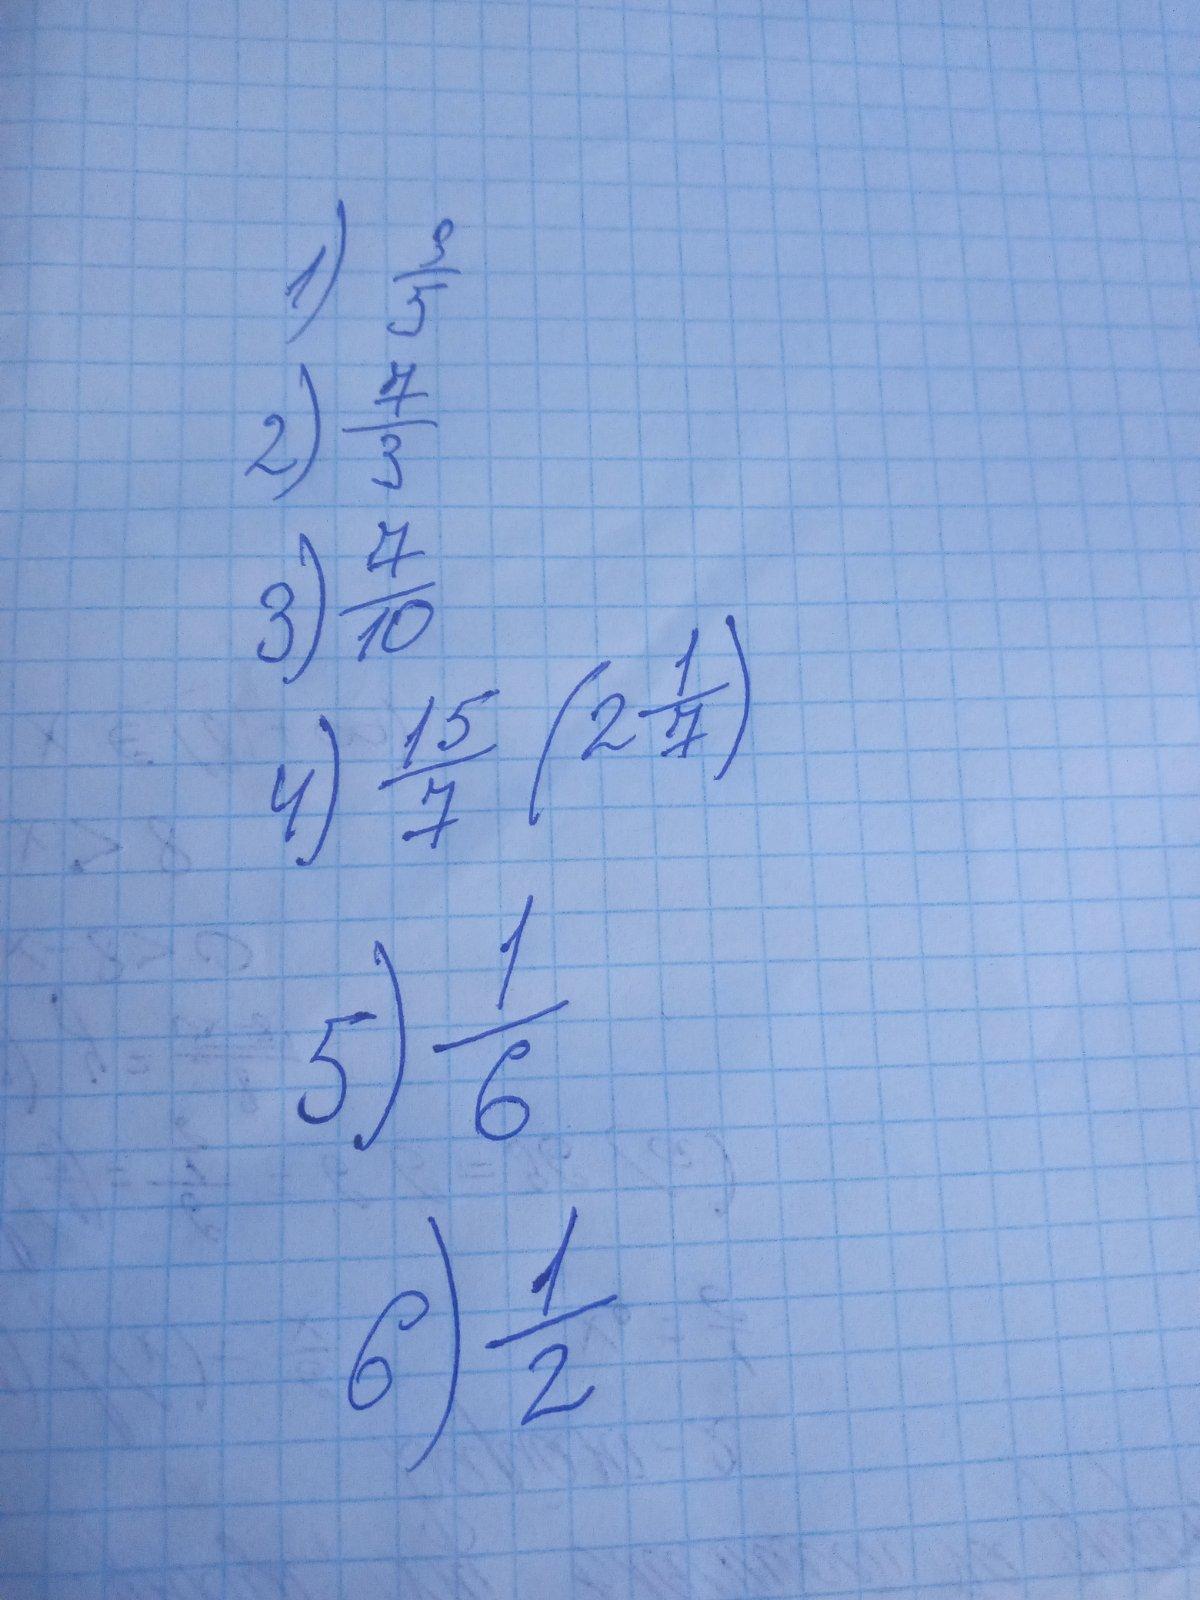 1) 3/5
2) 7/3
3) 7/10
4) 15/7 (2 1/7)
5) 1/6
6) 1/2